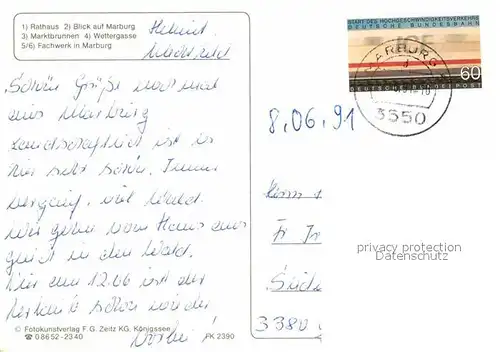 1) Rathaus 2) Blick auf Marburg
3) Marktbrunnen 4) Wettergasse
5/6) Fachwerk in Marburg
Helmut
Schöne Grüße noch mal
aus Marburg
Landschaftlich ist es
hier sehr schön. Immer
bergauf, viel Wald.
Wir gehen vom Haus aus
gleich in den Wald.
Nur den 12.06 ist der
Urlaub schon wieder
Vorbei!
© Fotokunstverlag F. G. Zeitz KG, Königssee
☎ 08652-2340 FK 2390
START DES HOCHGESCHWINDIGKEITSVERKEHRS
DEUTSCHE BUNDESBAHN
ICE
60
DEUTSCHE BUNDESPOST
MARBURG
3550
8.06.91
Fr
privacy protection
Datenschutz
3380